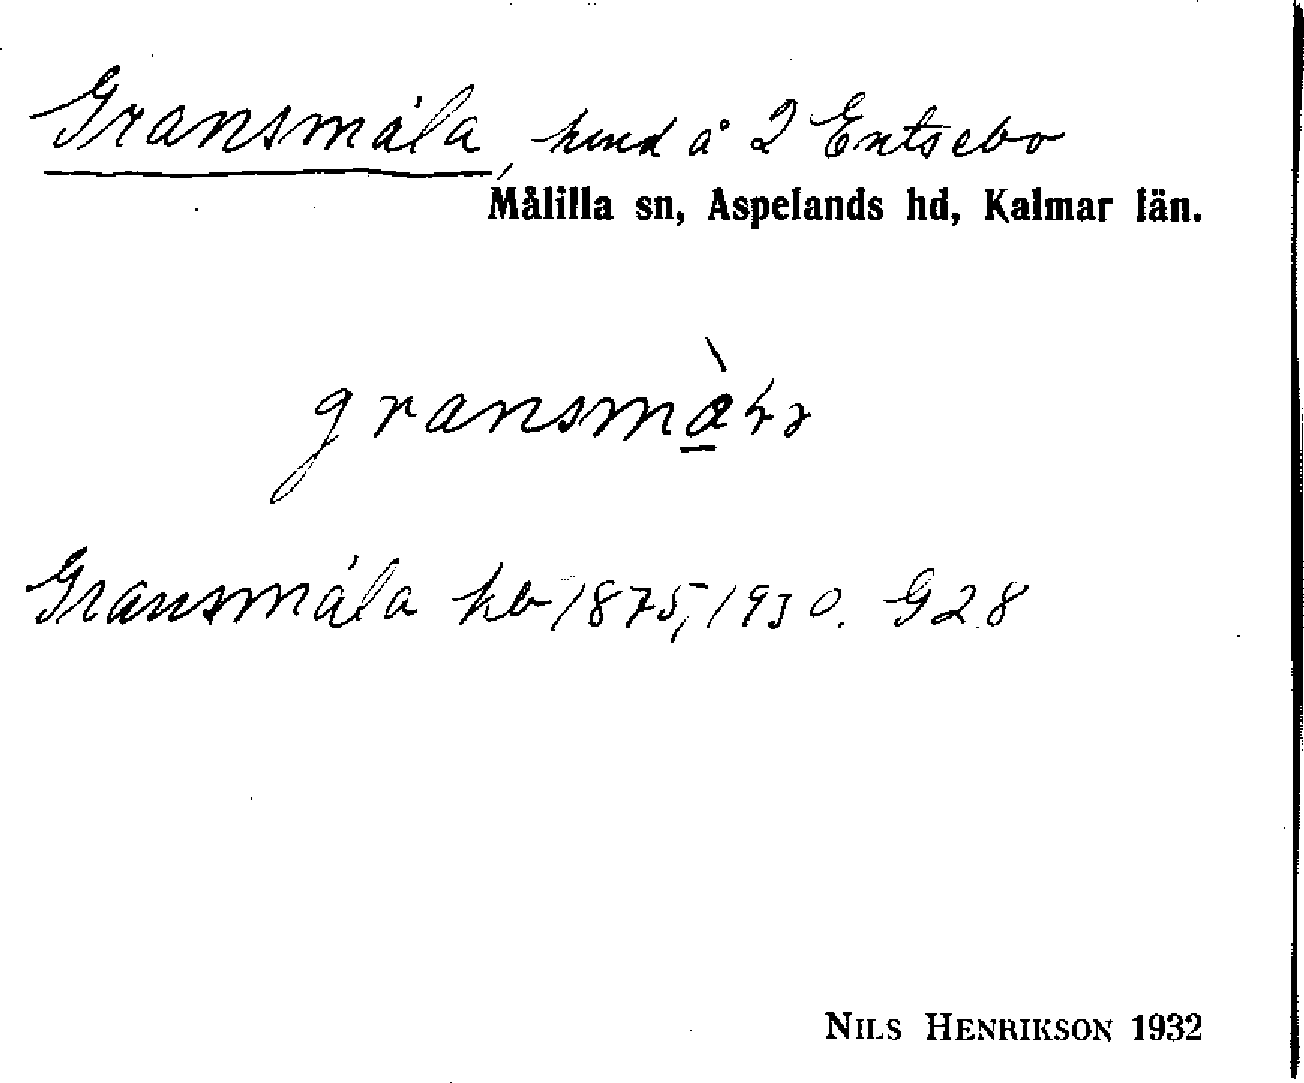 Gransmåla, hmd å 2 Entsebo
Målilla sn, Aspelands hd, Kalmar län.
Gransmåla hb 1875, 1930. G28
NILS HENRIKSON 1932